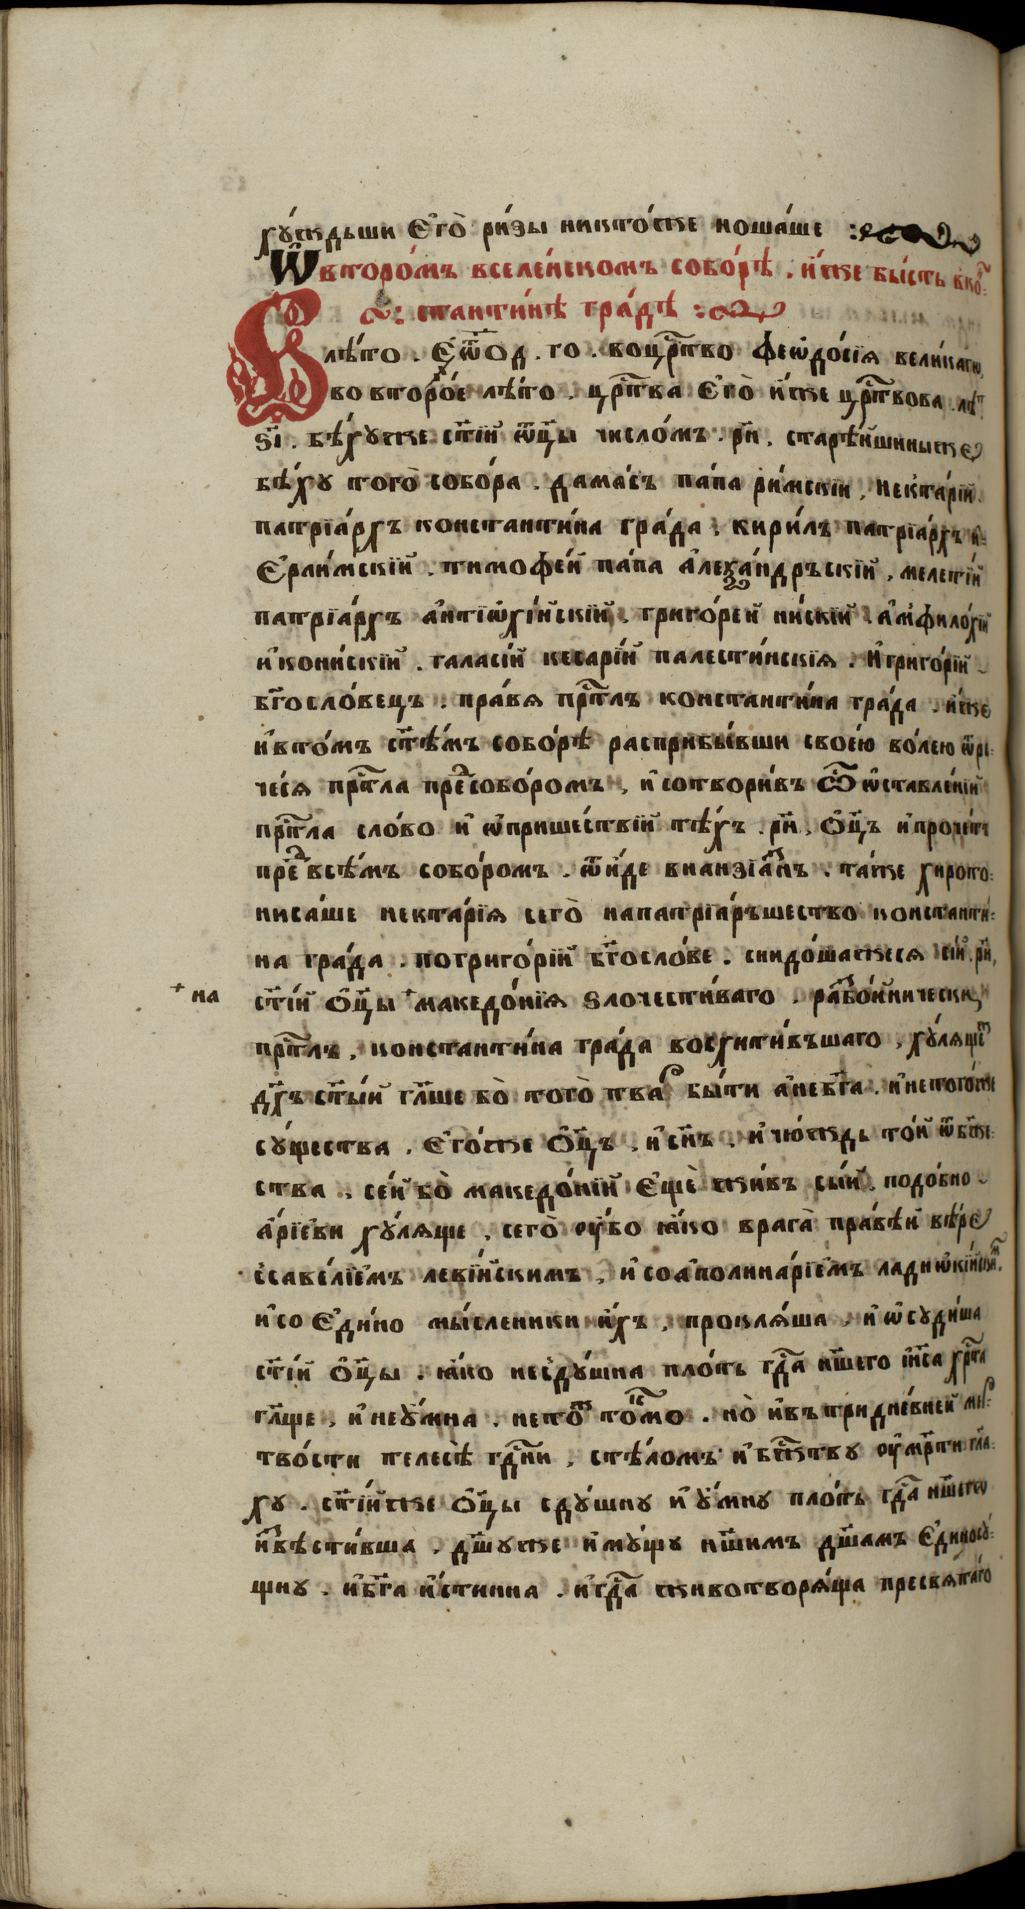 хꙋ́ждьши є҆гѡ̀ ри́зы никто́же ноша́ше :
Ѡ҆ второ́мъ вселе́нскомъ собо́рѣ . и҆́же бы́сть в ко́н
стантинѣ гра́дѣ :
В лѣ́то . го . во цр҇тво феѡдо́сїѧ вели́кагѡ
во второ́е лѣ́то . цр҇тва є҆гѡ̀ и҆́же цр҇твова лѣт
ѕ҃і . бѣ́хꙋже ст҃і́и ѻ҆ц҃ы число́мъ . р҃н , старѣ́йшиныже
бѣ́хꙋ тогѡ̀ собо́ра . дама́съ па́па ри́мскїи , некта́рїй
патрїа́рхъ константи́на гра́да , кири́лъ патрїа́рхъ и҆
єрли́мскїй . тимофе́й па́па а҆леѯа́ндръскїй , меле́тїй
патрїа́рхъ а҆нтїѡхі́йскїй . григо́рей ни́скїй . а҆мфило́хїй
и҆кони́скїй . гала́сїй кесарі́й палести́нскїѧ . и҆ григо́рїй
бг҃осло́вецъ . пра́вѧ пр҇то́лъ константи́на гра́да . и҆́же
и҆ в то́мъ ст҃ѣ́мъ собо́рѣ расприбы́вши свое́ю во́лею ѿре
че́сѧ пр҇то́ла пре́д собо́ромъ , и҆ сотвори́въ ѡ҆ ѡ҆ставле́нїй
пр҇то́ла сло́во и҆ ѡ҆ прише́ствїй тѣ́хъ . р҃н , ѻ҆ц҃ъ и҆ прочи́тъ
пре́д всѣ́мъ собо́ромъ . ѿи́де в нанзїа́нъ . та́же хирото
ниса́ше некта́рїѧ сего̀ на патрїа́ръшество константи́
на гра́да . по григо́рїй бг҃осло́ве . снидо́шажесѧ сі́и р҃н ,
ст҃і́й ѻ҆ц҃ы + македо́нїѧ ѕлочести́ваго . разбо́йнически
+ на
пр҇то́лъ , константи́на гра́да восхити́въшаго , хꙋ́лѧще
дх҃ъ ст҃ы́й гл҃ше бо̀ того̀ тва́р бы́ти а҆ не бг҃а . и҆ не того́же
сꙋ́щества , є҆го́же ѻ҆ц҃ъ , и҆ сн҃ъ . и҆ чю́ждь то́й ѿ бж҇е
ства , се́й бо̀ македо́нїй є҆щѐ жи́въ сы́й . подо́бно
а҆́рїеви хꙋ́лѧще , сего̀ ᲂу҆́бо ꙗ҆́ко врага̀ пра́вѣй вѣ́ре
с саве́лїемъ леві́йскимъ , и҆ со а҆полина́рїемъ ладиѡкі́йским .
и҆ со є҆ди́но мы́сленики и҆́хъ , проклѧ́ша , и҆ ѡ҆сꙋди́ша
ст҃і́й ѻ҆ц҃ы . ꙗ҆́ко незду́шна пло́ть гд҇а нш҃его і҆и҃са хр҇та
гл҃ще , и҆ не ᲂу҆́мна . не то́ то́кмо . но̀ и҆ въ придне́вней ме́р
твости телесѐ гд҇ни , с тѣ́ломъ и҆ бж҇твꙋ ᲂу҆мре́ти гл҃а
хꙋ . ст҃і́йже ѻ҆ц҃ы здꙋ́шнꙋ и҆ ᲂу҆́мнꙋ пло́ть гд҇а нш҃егѡ
и҆звѣсти́вша . дш҃ꙋже и҆мꙋ́щꙋ нш҃имъ дш҃амъ є҆диносꙋ́
щнꙋ . и҆ бг҃а и҆́стинна . и҆ гд҇а животворѧ́ща пресвѧта́го